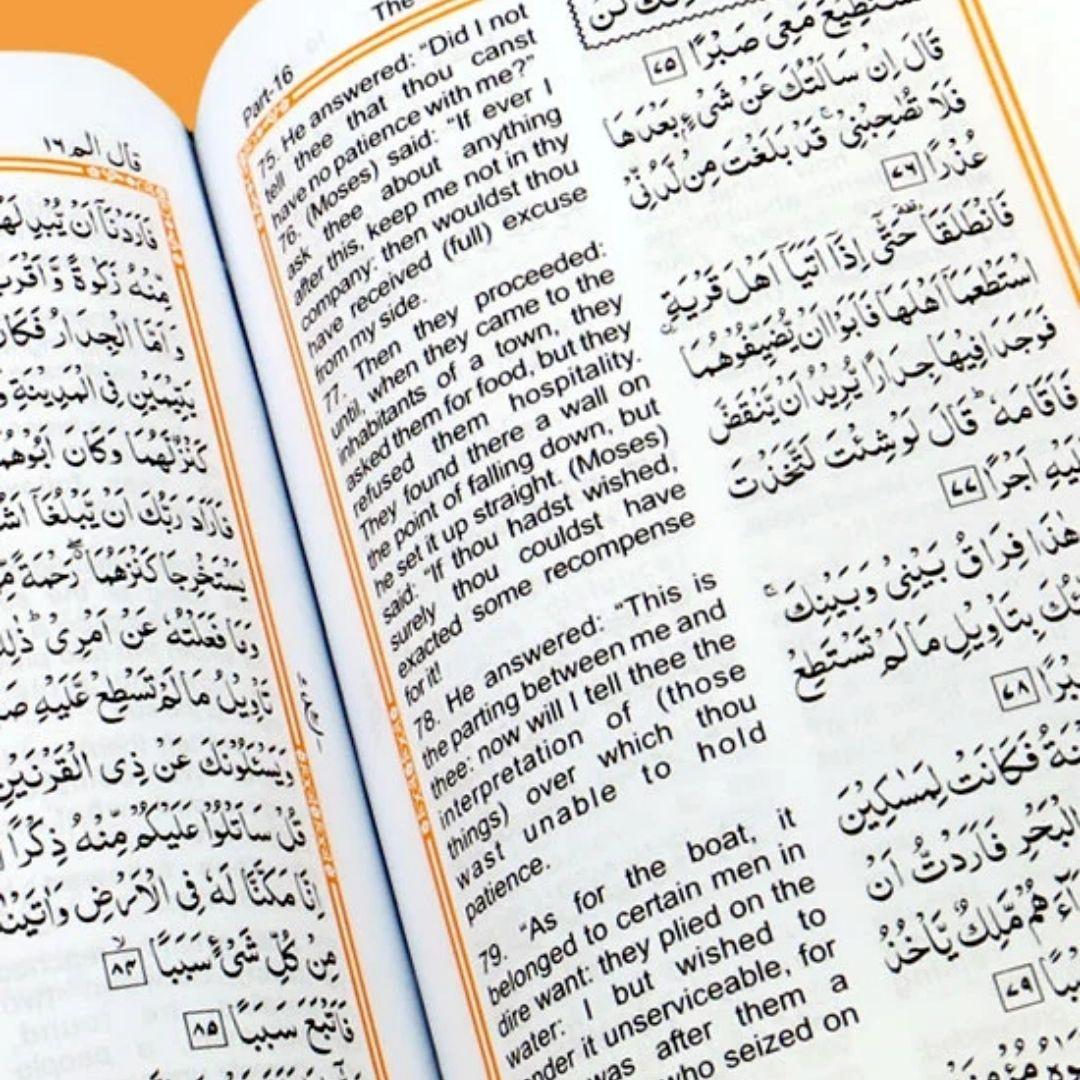 The
Part-16
75. He answered: "Did I not
tell thee that thou canst
have no patience with me?"
76. (Moses) said: "If ever I
ask thee about anything
after this, keep me not in thy
company: then wouldst thou
have received (full) excuse
from my side.
77. Then they proceeded:
until, when they came to the
inhabitants of a town, they
asked them for food, but they
refused them hospitality.
They found there a wall on
the point of falling down, but
he set it up straight. (Moses)
said: "If thou hadst wished,
surely thou couldst have
exacted some recompense
for it!
78. He answered: "This is
the parting between me and
thee: now will I tell thee the
interpretation of (those
things) over which thou
wast unable to hold
patience.
79. "As for the boat, it
belonged to certain men in
dire want: they plied on the
water: I but wished to
nder it unserviceable, for
was after them a
who seized on
مَعِيَ صَبْرًا ٧٥
قَالَ اِنْ سَاَلْتُكَ عَنْ شَيْءٍۭ بَعْدَهَا
فَلَا تُصٰحِبْنِيْ ۚ قَدْ بَلَغْتَ مِنْ لَّدُنِّيْ
عُذْرًا ٧٦
فَانْطَلَقَا حَتّٰٓى اِذَآ اَتَيَآ اَهْلَ قَرْيَةِ
اسْتَطْعَمَآ اَهْلَهَا فَاَبَوْا اَنْ يُّضَيِّفُوْهُمَا
فَوَجَدَا فِيْهَا جِدَارًا يُّرِيْدُ اَنْ يَّنْقَضَّ
فَاَقَامَهٗ ؕ قَالَ لَوْ شِئْتَ لَتَّخَذْتَ
عَلَيْهِ اَجْرًا ٧٧
هٰذَا فِرَاقُ بَيْنِيْ وَبَيْنِكَ ۚ
بِتَاْوِيْلِ مَا لَمْ تَسْتَطِعْ
٧٨
فَكَانَتْ لِمَسٰكِيْنَ
الْبَحْرِ فَاَرَدْتُّ اَنْ
هُمْ مَّلِكٌ يَّاْخُذُ
٧٩
قال الم ١٦
فَاَرَدْنَآ اَنْ يُّبْدِلَهُمَا
مِّنْهُ زَكٰوةً وَّاَقْرَبَ
وَاَمَّا الْجِدَارُ فَكَانَ
يَتِيْمَيْنِ فِي الْمَدِيْنَةِ
كَنْزٌ لَّهُمَا وَكَانَ اَبُوْهُمَا
فَاَرَادَ رَبُّكَ اَنْ يَّبْلُغَآ
يَسْتَخْرِجَا كَنْزَهُمَا رَحْمَةً
وَمَا فَعَلْتُهٗ عَنْ اَمْرِيْ ؕ ذٰلِكَ
تَاْوِيْلُ مَا لَمْ تَسْطِعْ عَّلَيْهِ
وَيَسْـَٔلُوْنَكَ عَنْ ذِي الْقَرْنَيْنِ
قُلْ سَاَتْلُوْا عَلَيْكُمْ مِّنْهُ ذِكْرًا
اِنَّا مَكَّنَّا لَهٗ فِي الْاَرْضِ وَاٰتَيْنٰهُ
مِنْ كُلِّ شَيْءٍ سَبَبًا ٨٤
فَاَتْبَعَ سَبَبًا ٨٥